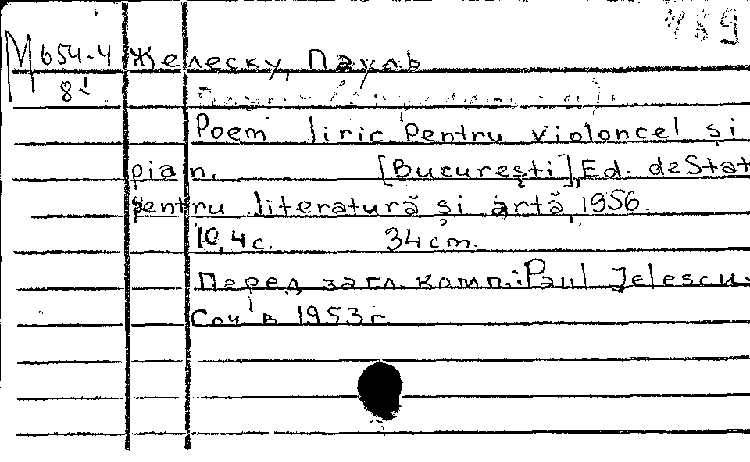 489
М 654-4 Желеску, Пауль
8
Poem liric pentru violoncel și
pian. [București], Ed. de Stat
pentru literatură și artă, 1956.
10,4 с. 34 cm.
Перед загл. комп.: Paul Jelescu.
Соч в 1953 г.